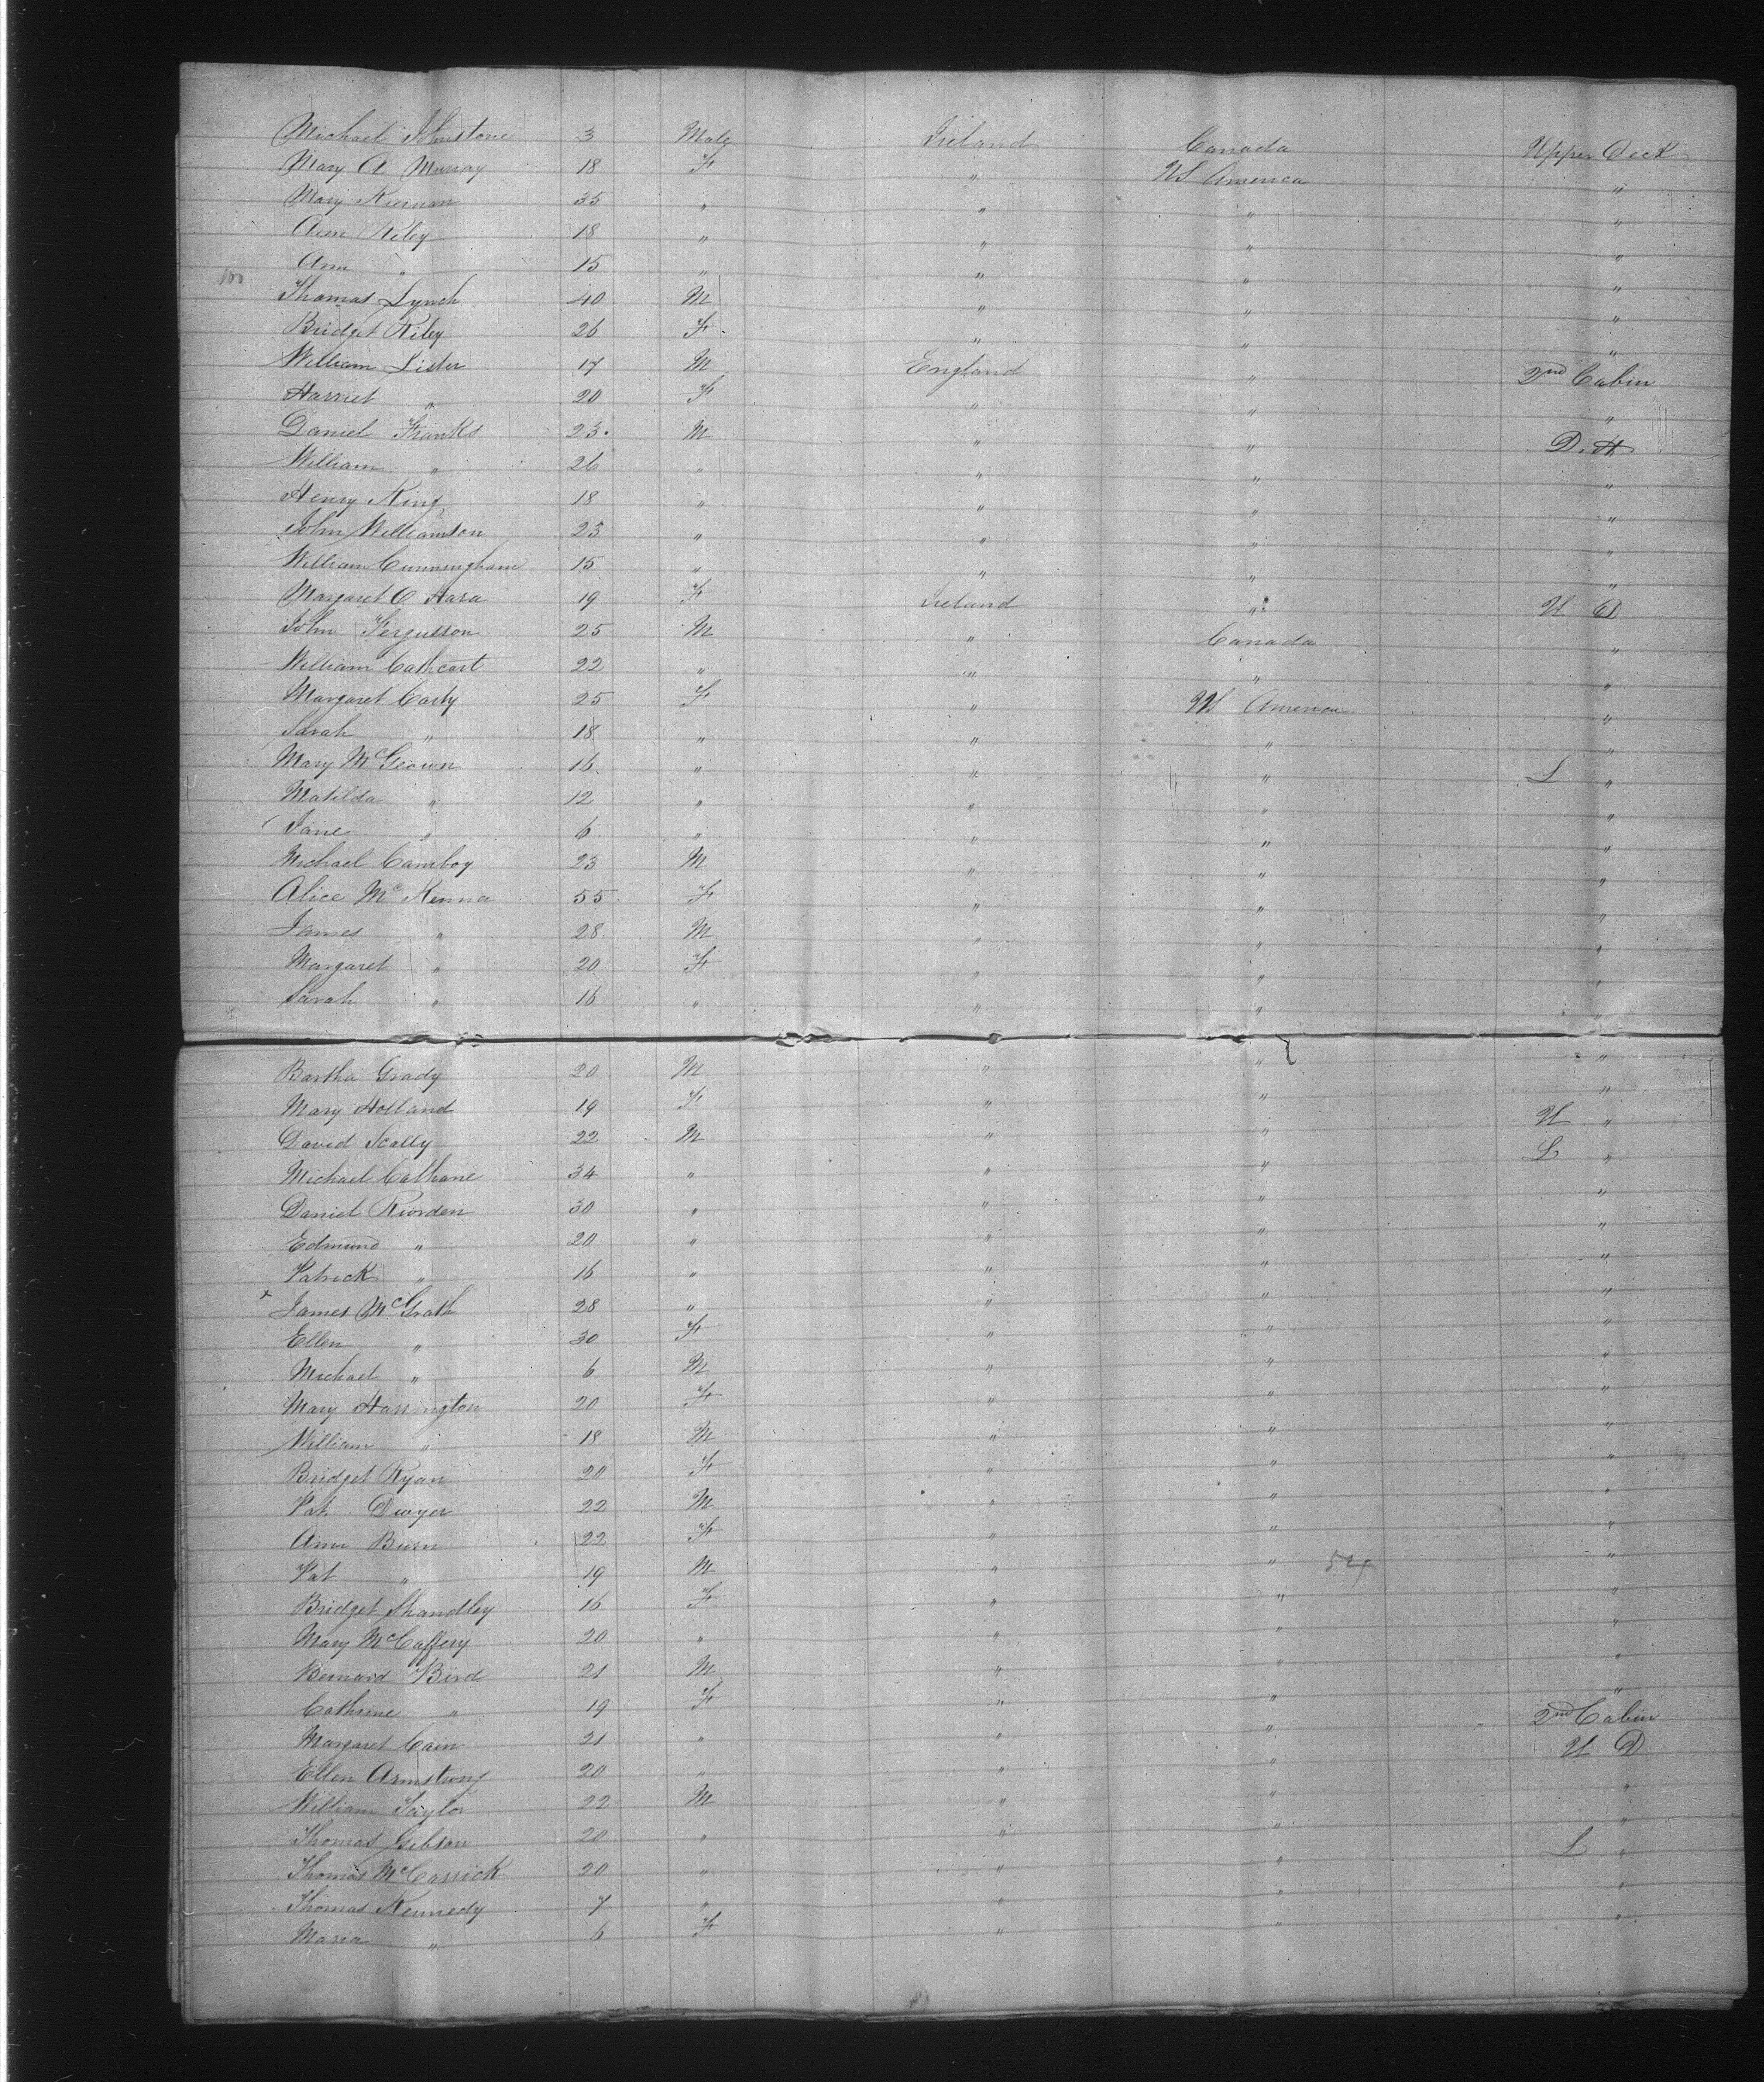 Michael Johnstone 3 Male Ireland Canada Upper Deck
Mary A Murray 18 F " US America "
Mary Kiernan 35 " " " "
Ann Riley 18 " " " "
Ann " 15 " " " "
100 Thomas Lynch 40 M " " "
Bridget Riley 26 F " " "
William Lister 17 M England " 2nd Cabin
Harriet " 20 F " " "
Daniel Franks 23 M " " D. H
William " 26 " " " "
Henry King 18 " " " "
John Williamson 23 " " " "
William Cunningham 15 " " " "
Margaret O Hara 19 F Ireland " U D
John Fergusson 25 M " Canada "
William Cathcart 22 " " " "
Margaret Carty 25 F " US America "
Sarah " 18 " " " "
Mary McGeown 16 " " " L "
Matilda " 12 " " " "
Jane " 6 " " " "
Michael Camboy 23 M " " "
Alice McKenna 55 F " " "
James " 28 M " " "
Margaret " 20 F " " "
Sarah " 16 " " " "
Bartha Grady 20 M " " "
Mary Holland 19 F " " U "
David Scally 22 M " " L "
Michael Calhane 34 " " " "
Daniel Riorden 30 " " " "
Edmund " 20 " " " "
Patrick " 16 " " " "
x James McGrath 28 " " " "
Ellen " 30 F " " "
Michael " 6 M " " "
Mary Harrington 20 F " " "
William " 18 M " " "
Bridget Ryan 20 F " " "
Pat Dwyer 22 M " " "
Ann Burn 22 F " " "
Pat " 19 M " " "
Bridget Shandley 16 F " " "
Mary McCaffery 20 " " " "
Bernard Bird 21 M " " "
Cathrine " 19 F " " "
Margaret Cain 21 " " " 2nd Cabin
Ellen Armstrong 20 " " " U D
William Taylor 22 M " " "
Thomas Gibson 20 " " " "
Thomas McCarrick 20 " " " L "
Thomas Kennedy 7 " " " "
Maria " 6 F " " "